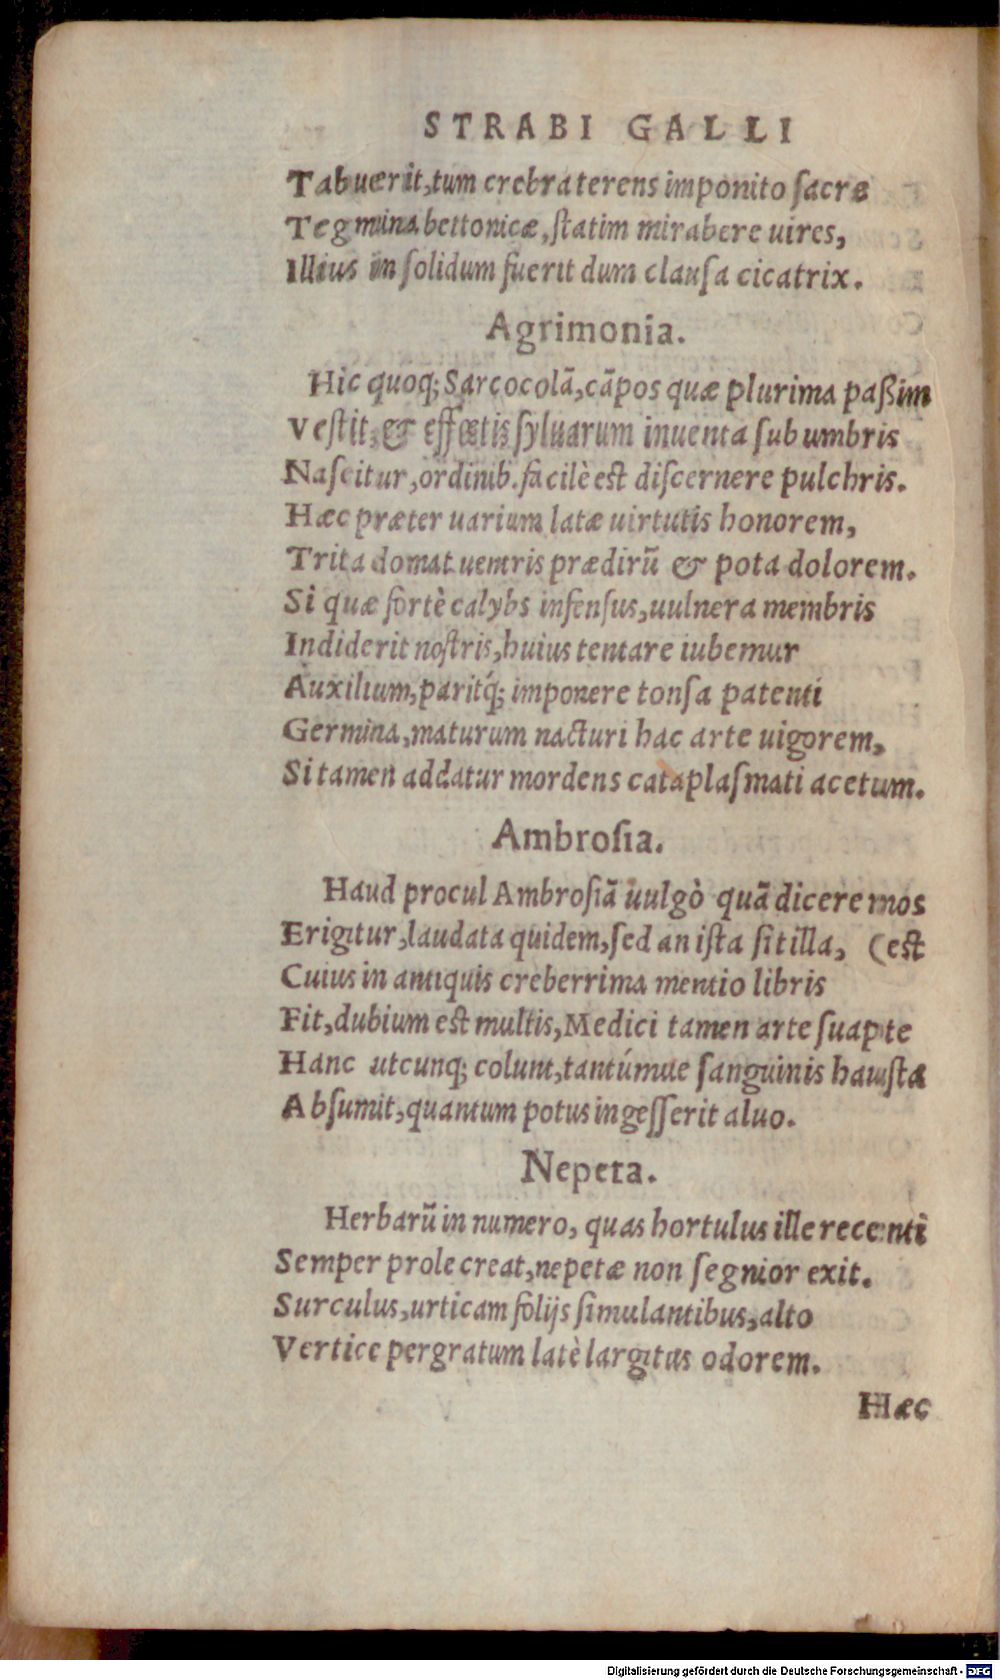 STRABI GALLI
Tabuerit, tum crebra terens imponito sacræ
Tegmina bettonicæ, ſtatim mirabere uires,
Illius in ſolidum fuerit dum clauſa cicatrix.
Agrimonia.
Hic quoq; Sarcocolā, cāpos quæ plurima paßim
Veſtit, & effœtis ſyluarum inuenta ſub umbris
Naſcitur, ordinib. facilè eſt diſcernere pulchris.
Hæc præter uarium latæ uirtutis honorem,
Trita domat uentris prædirū & pota dolorem.
Si quæ fortè calybs infenſus, uulnera membris
Indiderit noſtris, huius tentare iubemur
Auxilium, paritq́; imponere tonſa patenti
Germina, maturum nacturi hac arte uigorem,
Si tamen addatur mordens cataplaſmati acetum.
Ambroſia.
Haud procul Ambroſiā uulgò quā dicere mos
Erigitur, laudata quidem, ſed an iſta ſit illa, (eſt
Cuius in antiquis creberrima mentio libris
Fit, dubium eſt multis, Medici tamen arte ſuapte
Hanc utcunq; colunt, tantúmue ſanguinis hauſta
Abſumit, quantum potus ingeſſerit aluo.
Nepeta.
Herbarū in numero, quas hortulus ille recenti
Semper prole creat, nepetæ non ſegnior exit.
Surculus, urticam folijs ſimulantibus, alto
Vertice pergratum latè largitus odorem.
Hæc
Digitalisierung gefördert durch die Deutsche Forschungsgemeinschaft - DFG